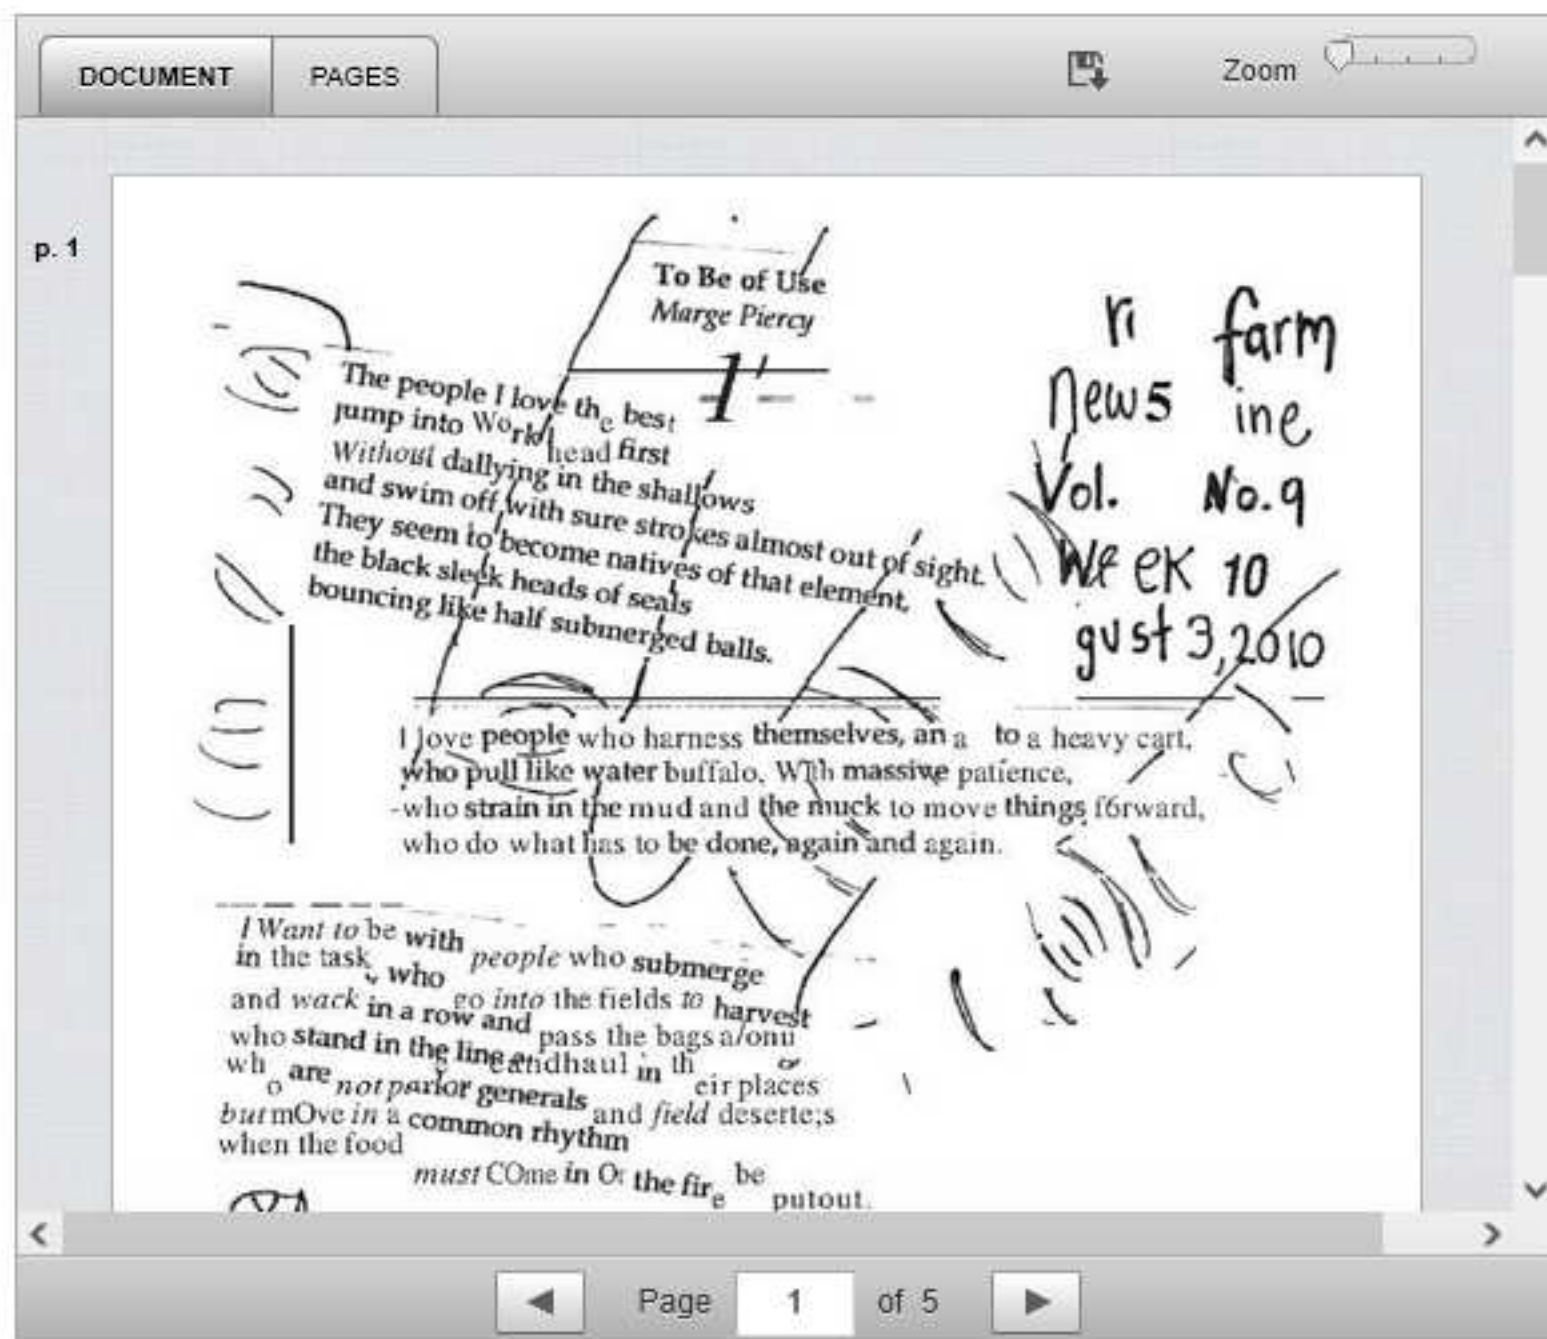 DOCUMENT PAGES Zoom
p. 1
To Be of Use
Marge Piercy
ri farm
new5 ine
Vol. No.9
WeEK 10
gust 3,2010
The people I love the best
jump into Work head first
Without dallying in the shallows
and swim off with sure strokes almost out of sight.
They seem to become natives of that element,
the black sleek heads of seals
bouncing like half submerged balls.
I love people who harness themselves, an a to a heavy cart,
who pull like water buffalo. WTh massive patience,
-who strain in the mud and the muck to move things f6rward,
who do what has to be done, again and again.
I Want to be with people who submerge
in the task, who go into the fields to harvest
and wack in a row and pass the bags a/onu
who stand in the line andhaul in their places
who are not parlor generals and field deserte;s
butmOve in a common rhythm
when the food
must COme in Or the fire be putout.
Page 1 of 5